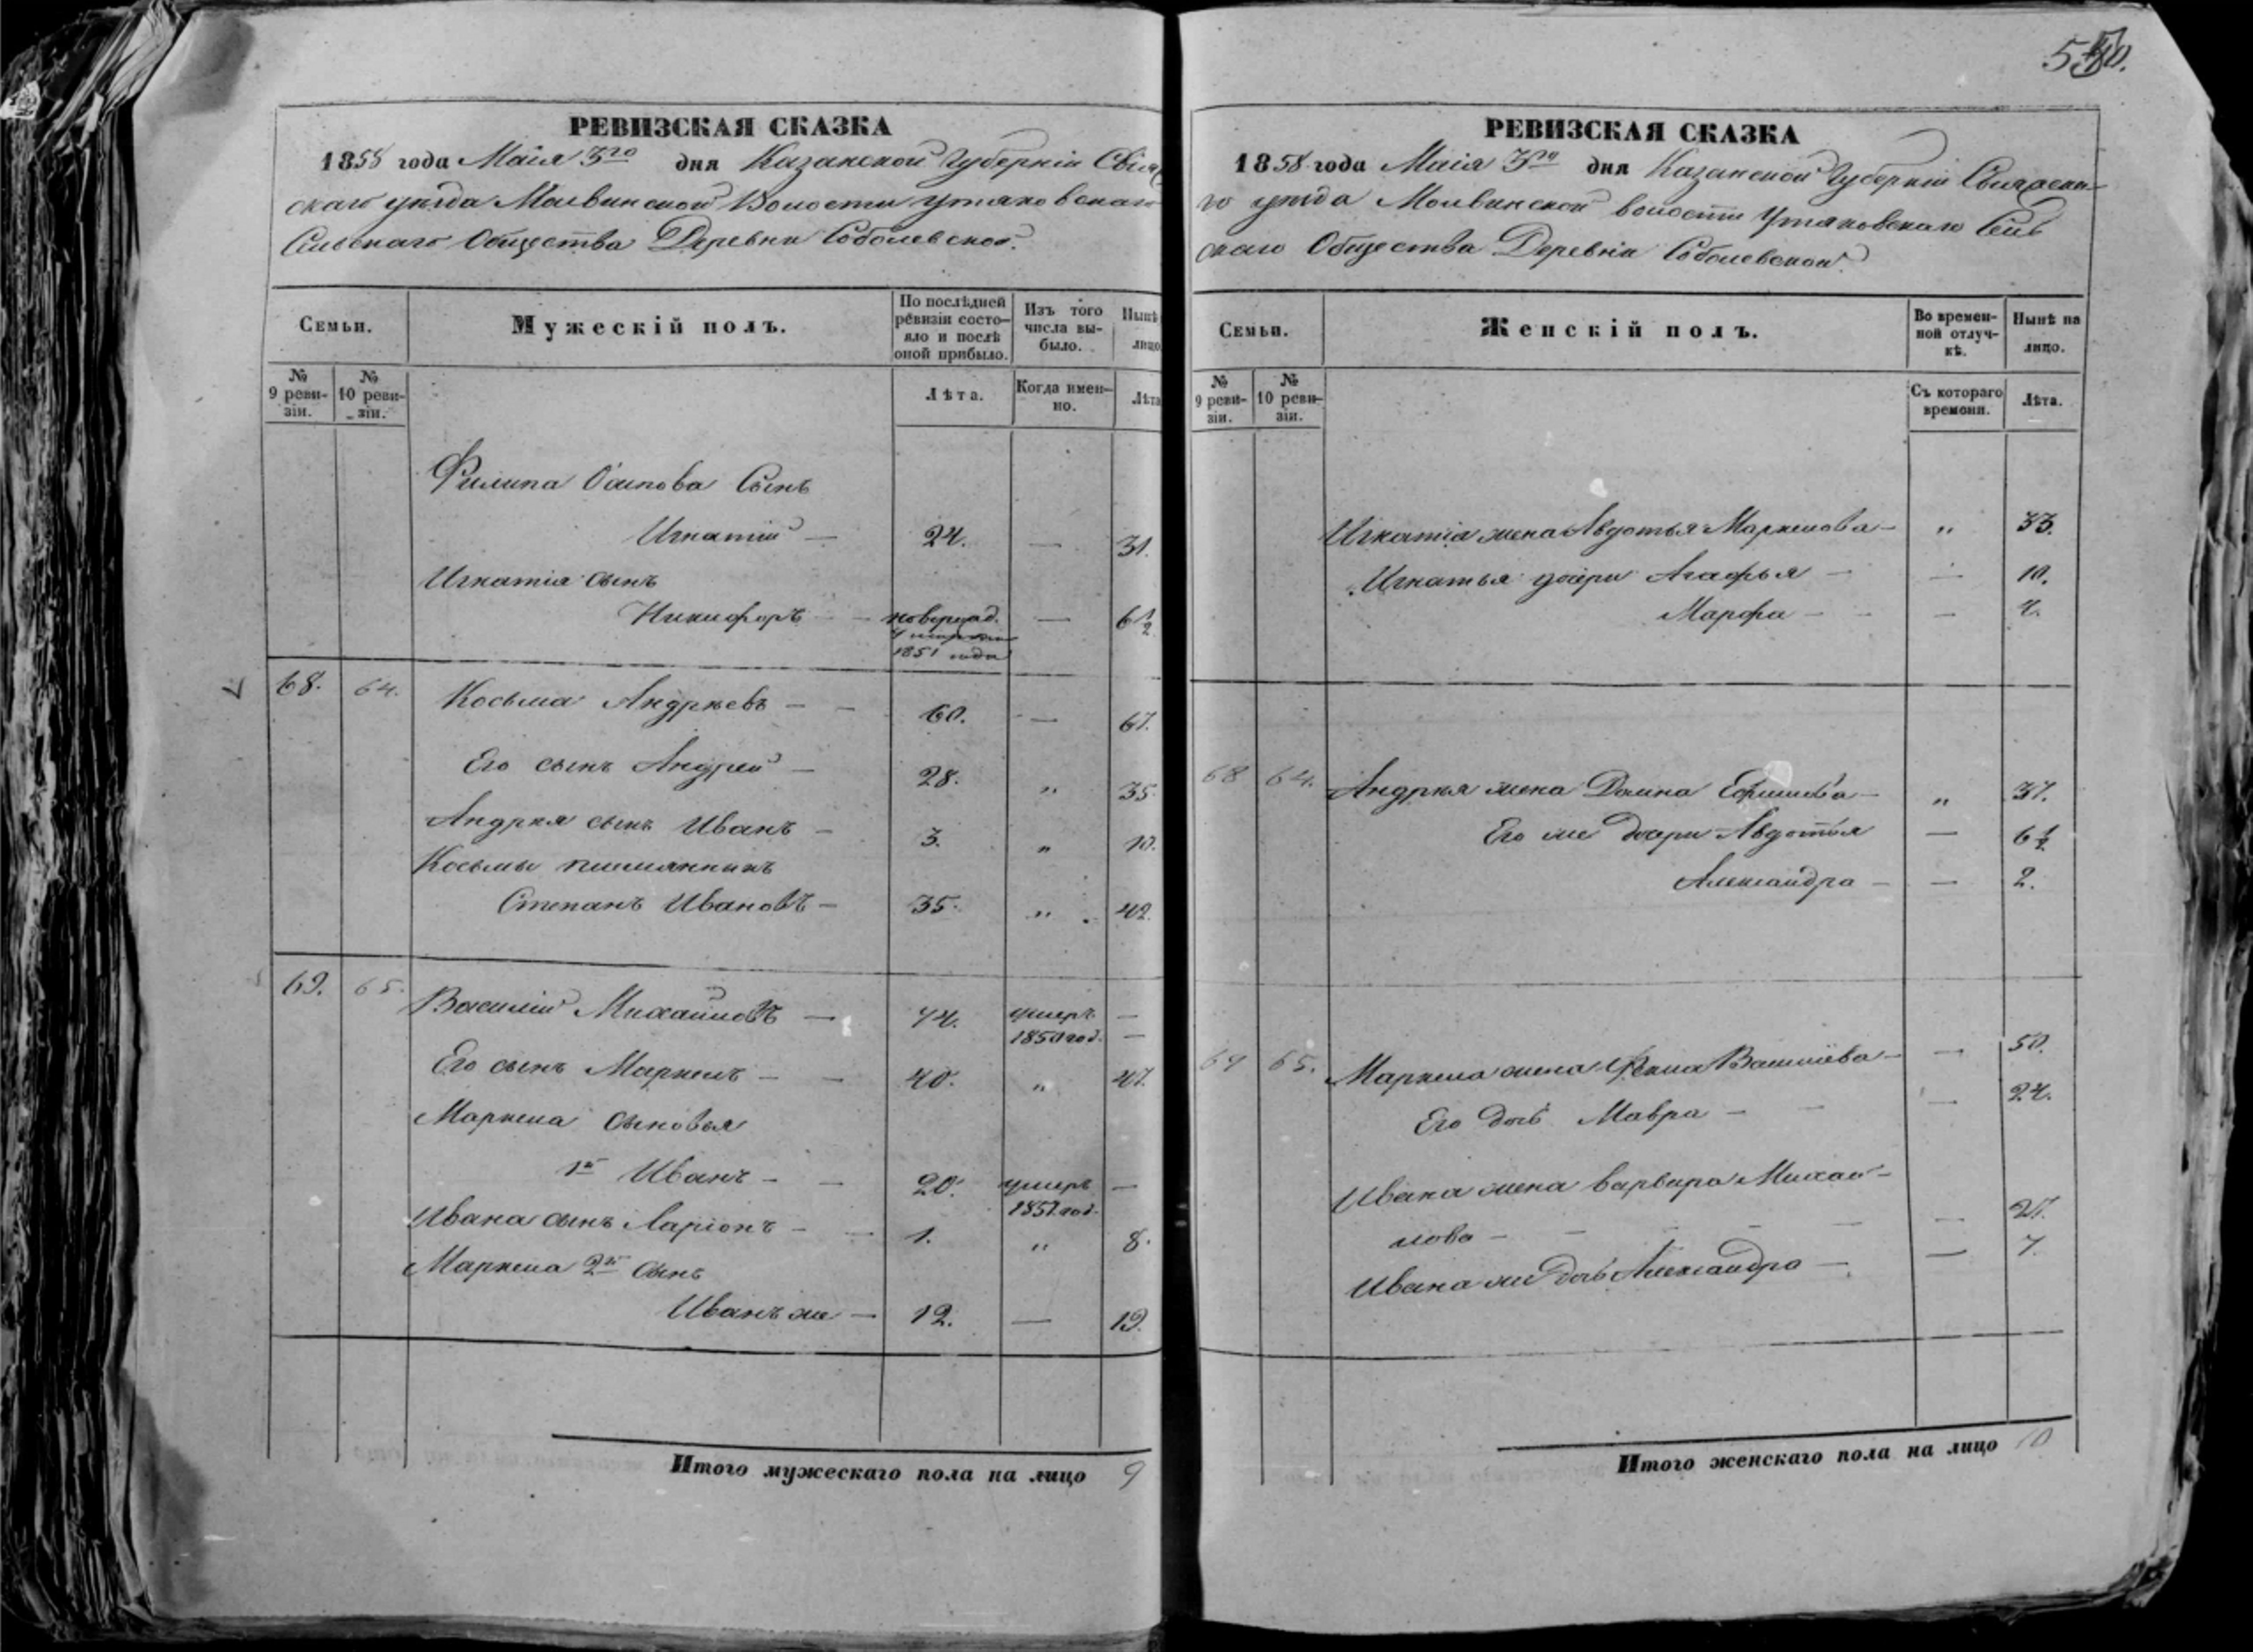 550.
РЕВИЗСКАЯ СКАЗКА
1858 года Маія 3го дня Казанской Губерніи Свіяж
скаго уѣзда Молвинской Волости Утяковскаго
Сельскаго Общества Деревни Соболевской.
Семьи. Мужескій полъ. По послѣдней ревизіи состояло и послѣ оной прибыло. Изъ того числа выбыло. Нынѣ лицо
№ 9 ревизіи. № 10 ревизіи. Лѣта. Когда именно. Лѣта
Филипа Осипова Сынъ
Игнатій — 24. — 31.
Игнатія сынъ
Никифоръ — новорожд. — 6 1/2
1851 года
68. 64. Косьма Андрѣевъ — — 60. — 67.
Его сынъ Андрей — 28. „ 35.
Андрея сынъ Иванъ — 3. „ 10.
Косьмы племянникъ
Степанъ Ивановъ — 35. „ 42.
69. 65. Василій Михайловъ — 74. умеръ —
1850 год. —
Его сынъ Маркелъ — — 40. „ 47.
Маркела сыновья
1й Иванъ — — 20. умеръ —
1857 год.
Ивана сынъ Ларіонъ — — 1. „ 8.
Маркела 2й сынъ
Иванъ же — 12. — 19.
Итого мужескаго пола на лицо 9
РЕВИЗСКАЯ СКАЗКА
1858 года Маія 3го дня Казанской Губерніи Свіяжска-
го уѣзда Молвинской волости Утяковскаго Сель
скаго Общества Деревни Соболевской.
Семьи. Женскій полъ. Во временной отлучкѣ. Нынѣ на лицо.
№ 9 ревизіи. № 10 ревизіи. Съ котораго времени. Лѣта.
Игнатія жена Авдотья Маркелова — „ 33.
Игнатья дочери Агафья — — 10.
Марфа — — — 4.
68 64. Андрея жена Домна Ефимова — „ 37.
Его же дочери Авдотья — 6 1/2
Александра — — 2.
69 65. Маркела жена Фекла Васильева — — 50.
Его дочь Мавра — — — 24.
Ивана жена Варвара Михай-
лова — — — — — 27.
Ивана же дочь Александра — — 7.
Итого женскаго пола на лицо 10